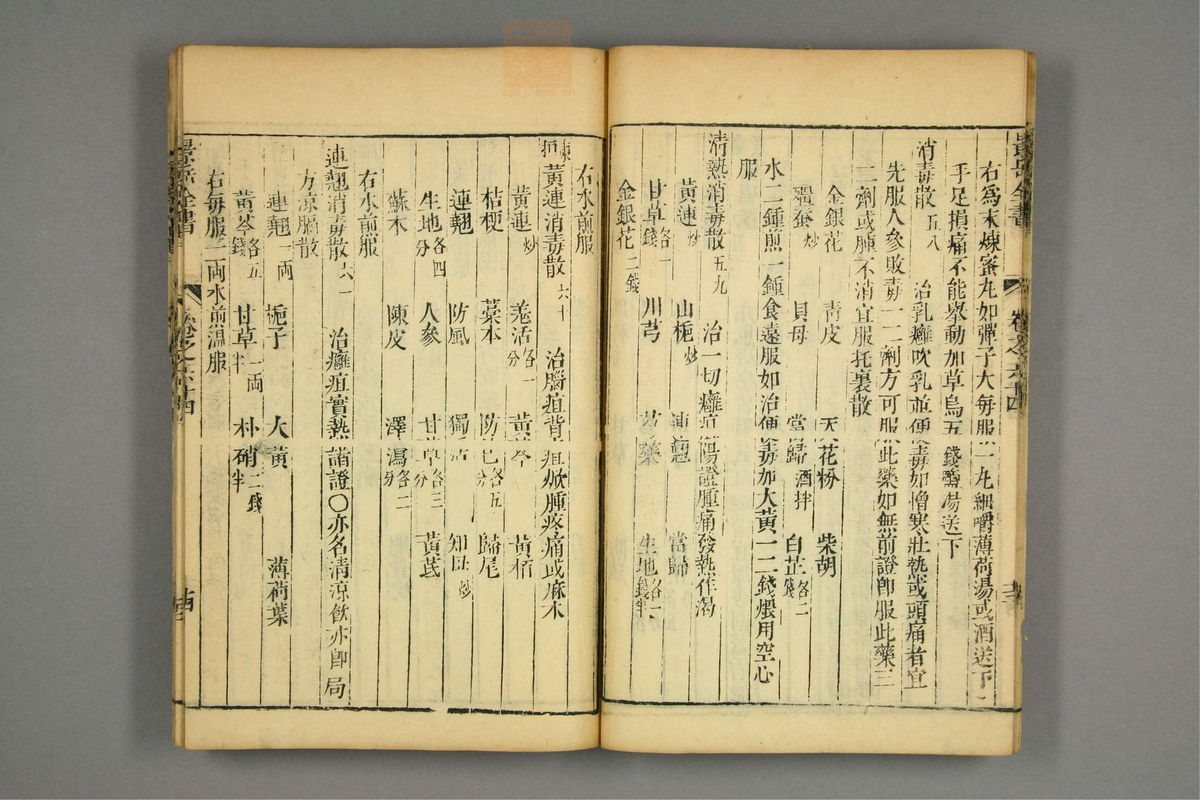 右為末煉蜜丸如彈子大每服一丸細嚼薄荷湯或酒送下
手足損痛不能舉動加草烏五錢薑湯送下
消毒散五八 治乳癰吹乳並便毒如憎寒壯熱或頭痛者宜
先服人參敗毒一二劑方可服此藥如無前證即服此藥三
二劑或腫不消宜服托裏散
金銀花 青皮 天花粉 柴胡
殭蠶炒 貝母 當歸酒拌 白芷各二錢
水二鍾煎一鍾食遠服如治便毒加大黃一二錢煨用空心
服
清熱消毒散五九 治一切癰疽陽證腫痛發熱作渴
黃連炒 山梔炒 連翹 當歸
甘草各一錢 川芎 芍藥 生地各一錢半
金銀花二錢
右水煎服
東垣黃連消毒散六十 治腦疽背疽焮腫疼痛或麻木
黃連炒 羗活各一分 黃芩 黃栢
桔梗 藁本 防己各五分 歸尾
連翹 防風 獨活 知母炒
生地各四分 人參 甘草各三分 黃茋
蘇木 陳皮 澤瀉各二分
右水煎服
連翹消毒散六一 治癰疽實熱諸證〇亦名清涼飲亦即局
方涼膈散
連翹一兩 梔子 大黃 薄荷葉
黃芩各五錢 甘草一兩半 朴硝二錢半
右每服一兩水煎溫服
景岳全書
卷之六十四